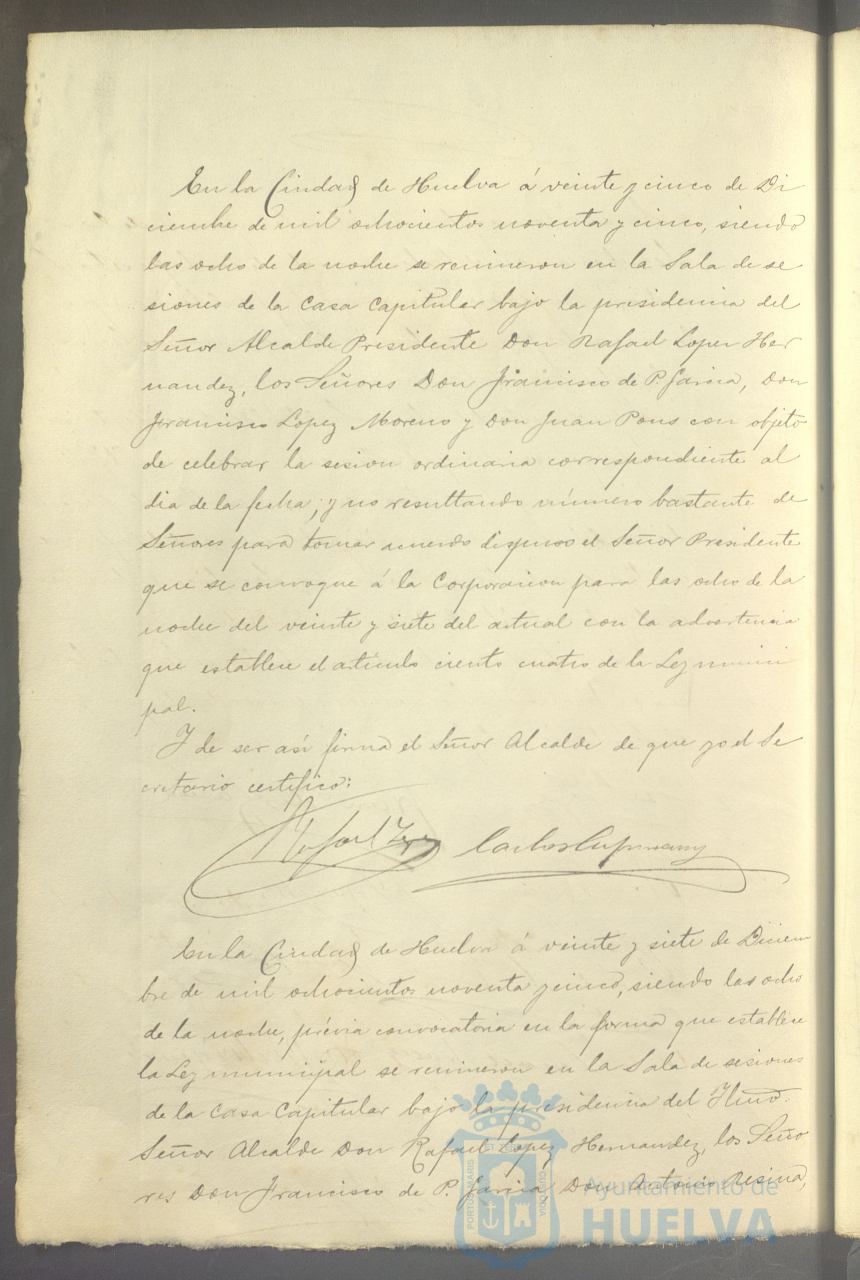 En la Ciudad de Huelva á veinte y cinco de Di
ciembre de mil ochocientos noventa y cinco, siendo
las ocho de la noche se reunieron en la Sala de se
siones de la Casa Capitular bajo la presidencia del
Señor Alcalde Presidente Don Rafael Lopez Her
nandez, los Señores Don Francisco de P. Garcia, Don
Francisco Lopez Moreno y Don Juan Pons con objeto
de celebrar la sesion ordinaria correspondiente al
dia de la fecha; y no resultando número bastante de
Señores para tomar acuerdo dispuso el Señor Presidente
que se convoque á la Corporacion para las ocho de la
noche del veinte y siete del actual con la advertencia
que establece el artículo ciento cuatro de la Ley munici
pal.
Y de ser así firma el Señor Alcalde de que yo el Se
cretario certifico:
Rafael Lopez Carlos
En la Ciudad de Huelva á veinte y siete de Diciem
bre de mil ochocientos noventa y cinco, siendo las ocho
de la noche, prévia convocatoria en la forma que establece
la Ley municipal se reunieron en la Sala de sesiones
de la Casa Capitular bajo la presidencia del Iltmo.
Señor Alcalde Don Rafael Lopez Hernandez, los Seño
res Don Francisco de P. Garcia, Don Antonio Resina,
Ayuntamiento de
HUELVA